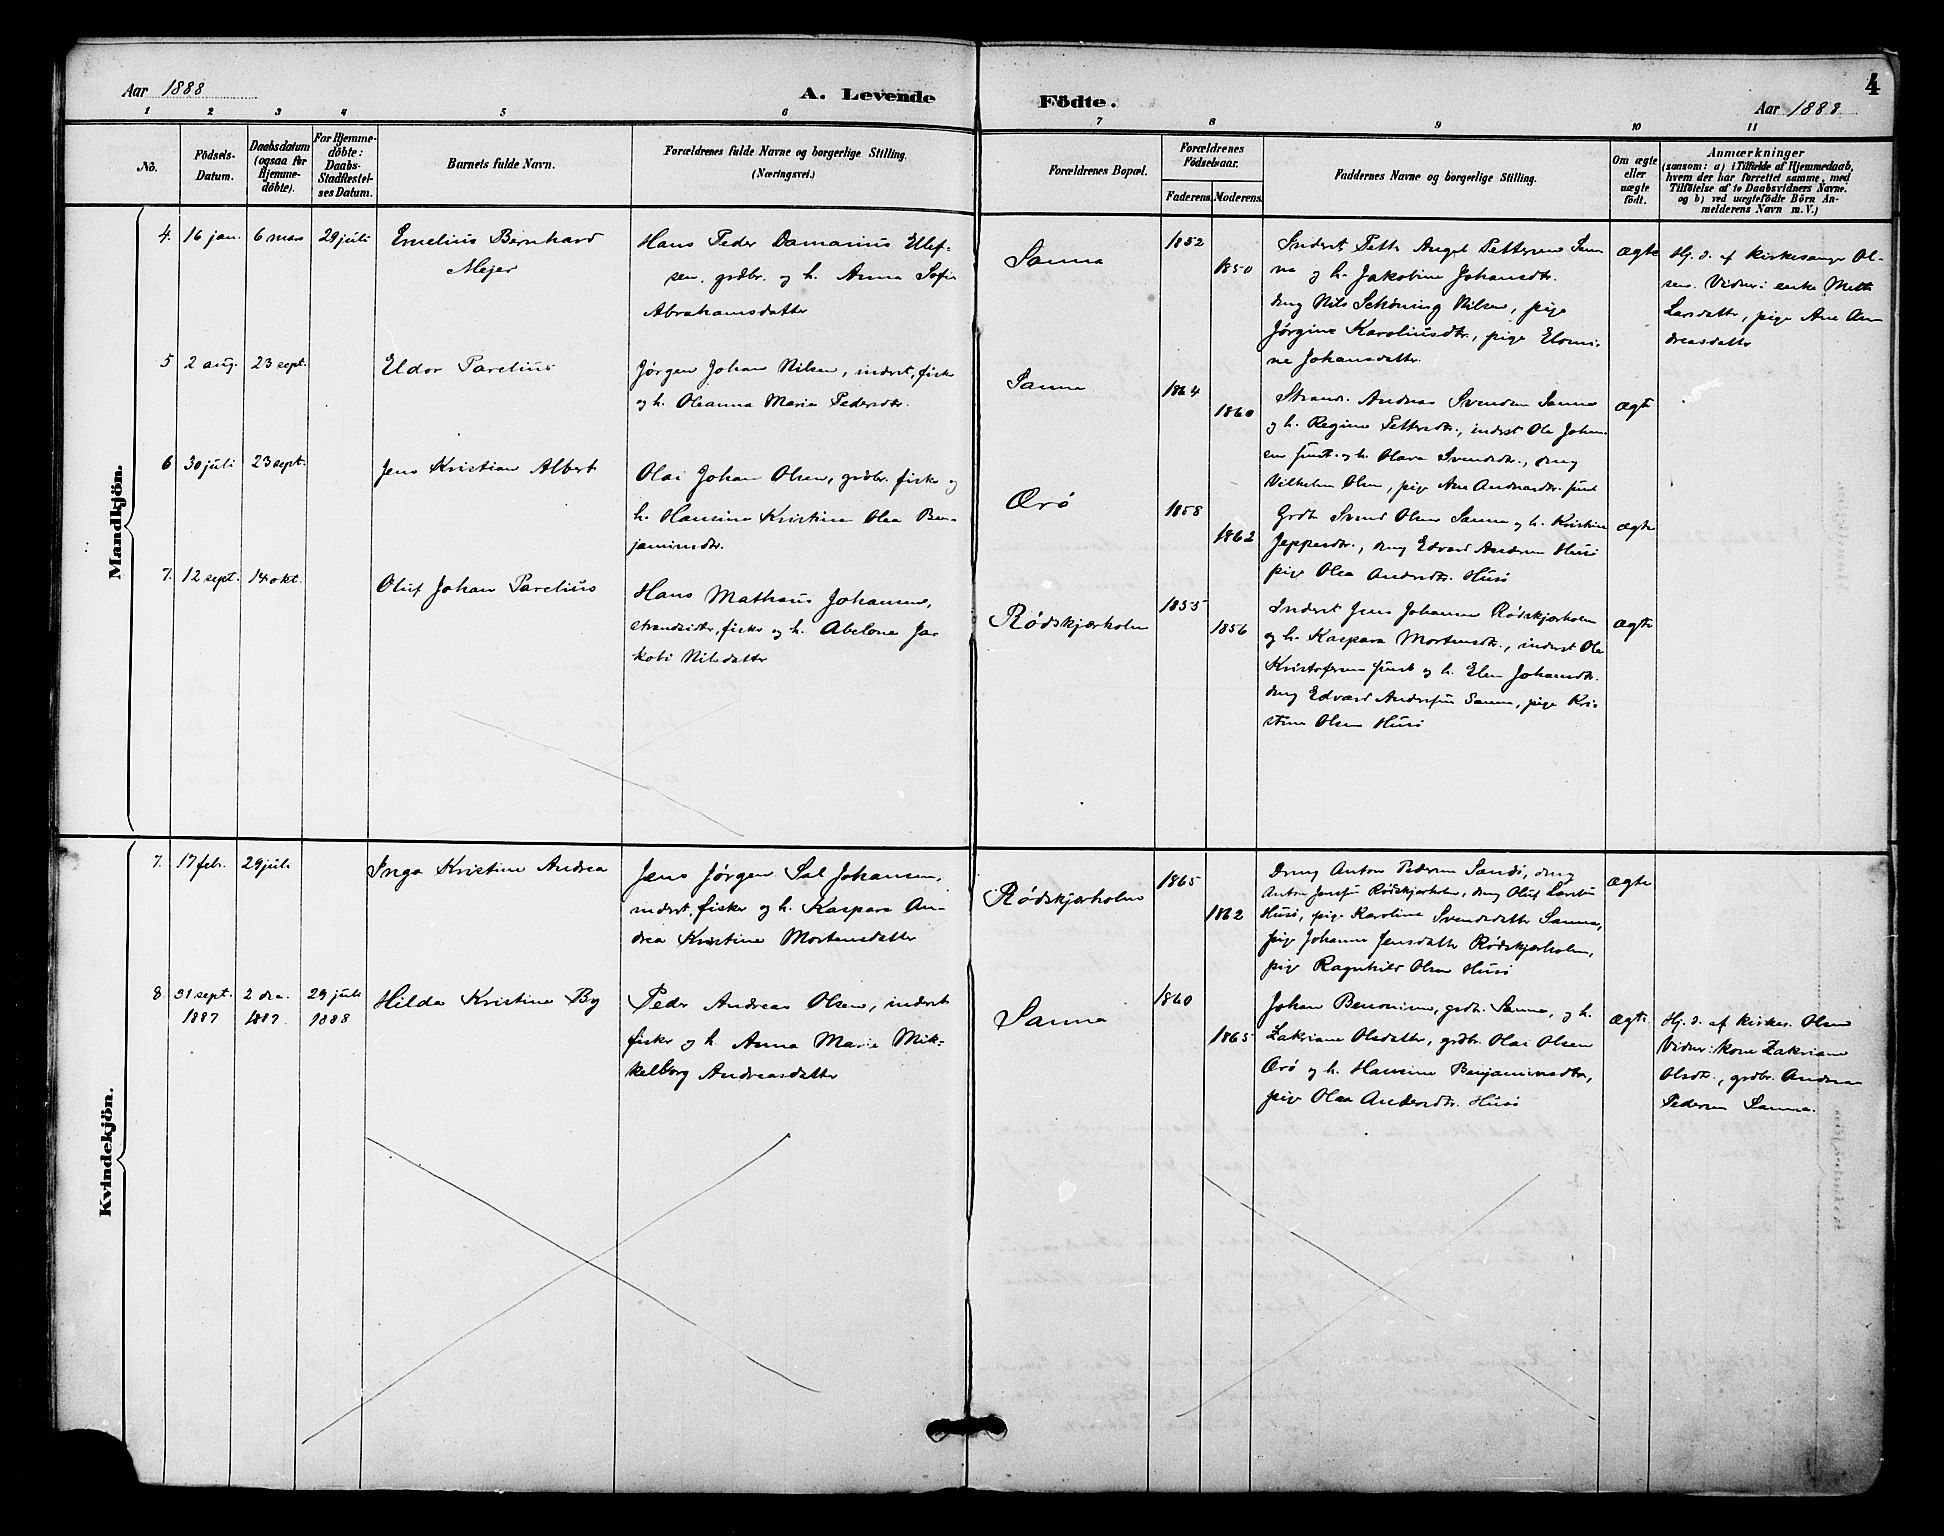 Aar 1888
A. Levende
Födte.
Aar 1888
4
1 2 3 4 5 6 7 8 9 10 11
No.
Födsels-
Datum.
Daabsdatum
(ogsaa for
Hjemme-
döbte).
For Hjemme-
döbte:
Daabs-
Stadfæstel-
ses Datum.
Barnets fulde Navn.
Forældrenes fulde Navne og borgerlige Stilling.
(Næringsvei.)
Forældrenes Bopæl.
Forældrenes
Födselsaar.
Faderens. Moderens.
Faddernes Navne og borgerlige Stilling.
Om ægte
eller
uægte
födt.
Anmærkninger
(saasom: a) i Tilfælde af Hjemmedaab,
hvem der har forrettet samme, med
Tilföielse af to Daabsvidners Navne.
og b) ved uægtefödte Börn An-
melderens Navn m. V.)
Mandkjön.
4. 16 jan. 6 mas 29 juli
Emelius Bernhard
Mejer
Hans Peder Damanius Ellef-
sen, grdbr. og h. Anna Sofie
Abrahamsdatter
Sanna
1852
1850
Inderst Petter Angel Pettersen San
na og h. Jakobine Johansdtr.
dreng Nils Schöning Nilsen, pige
Jørgine Karoliusdtr., pige Elomi-
ne Johansdatter.
ægte
Hj. d. af kirkesanger Ol-
sen. Vidner: enke Mette
Larsdatter, pige Ane An
dreasdatter
5 2 aug. 23 sept.
Eldor Parelius
Jørgen Johan Nilsen, inderst, fisker
og h. Oleanna Maria Pedersdtr.
Sanna
1864
1860
Strands. Andreas Svendsen Sanna
og h. Regine Pettersdtr., inderst Ole Johan
sen smst. og h. Olava Svendsdtr., dreng
Vilhelm Olsen, pige Ane Andreasdtr. smst
ægte
6 30 juli 23 sept.
Jens Kristian Albert
Olai Johan Olsen, grdbr. fisker og
h. Hansine Kristine Olea Ben-
jaminsdtr.
Ærö
1858
1862
Grdb. Svend Olsen Sanna og h. Kristine
Jeppesdtr., dreng Edvard Andersen Husö
pige Olea Andersdtr. Husö
ægte
7. 12 sept. 14 okt.
Oluf Johan Parelius
Hans Mathæus Johansen,
strandsidder, fisker og h. Abelone Ja-
kobi Nilsdatter
Rödskjærholm
1855
1856
Inderst Jens Johansen Rödskjærholm
og h. Kaspara Mortensdtr., inderst Ole
Kristofersen smst og h. Elen Johansdtr.
dreng Edvard Andersen Sanna, pige Kri-
stine Olsen Husö
ægte
Kvindekjön.
7. 17 febr. 29 juli
Inga Kristine Andrea
Jens Jørgen Sal Johansen,
inderst, fisker og h. Kaspara An-
drea Kristine Mortensdatter
Rödskjærholm
1865
1862
Dreng Anton Pedersen Sandö, dreng
Anton Jensen Rödskjærholm, dreng Oluf Larsen
Husö, pige Karoline Svendsdatter Sanna,
pige Johanna Jensdatter Rödskjærholm,
pige Ragnhild Olsen Husö
ægte
8 31 sept.
1887
2 dec.
1887.
29 juli
1888
Hilda Kristine By
Peder Andreas Olsen, inderst
fisker og h. Anna Marie Mik-
kelborg Andreasdatter
Sanna
1860
1865
Johan Benonisen, grdbr. Sanna, og h.
Zakriane Olsdatter, grdbr. Olai Olsen
Ærö og h. Hansine Benjaminsdtr,
pige Olea Andersdtr. Husö
ægte
Hj. d. af kirkes. Olsen
Vidner: kone Zakriane
Olsdtr., grdbr. Andreas
Pedersen Sanna.